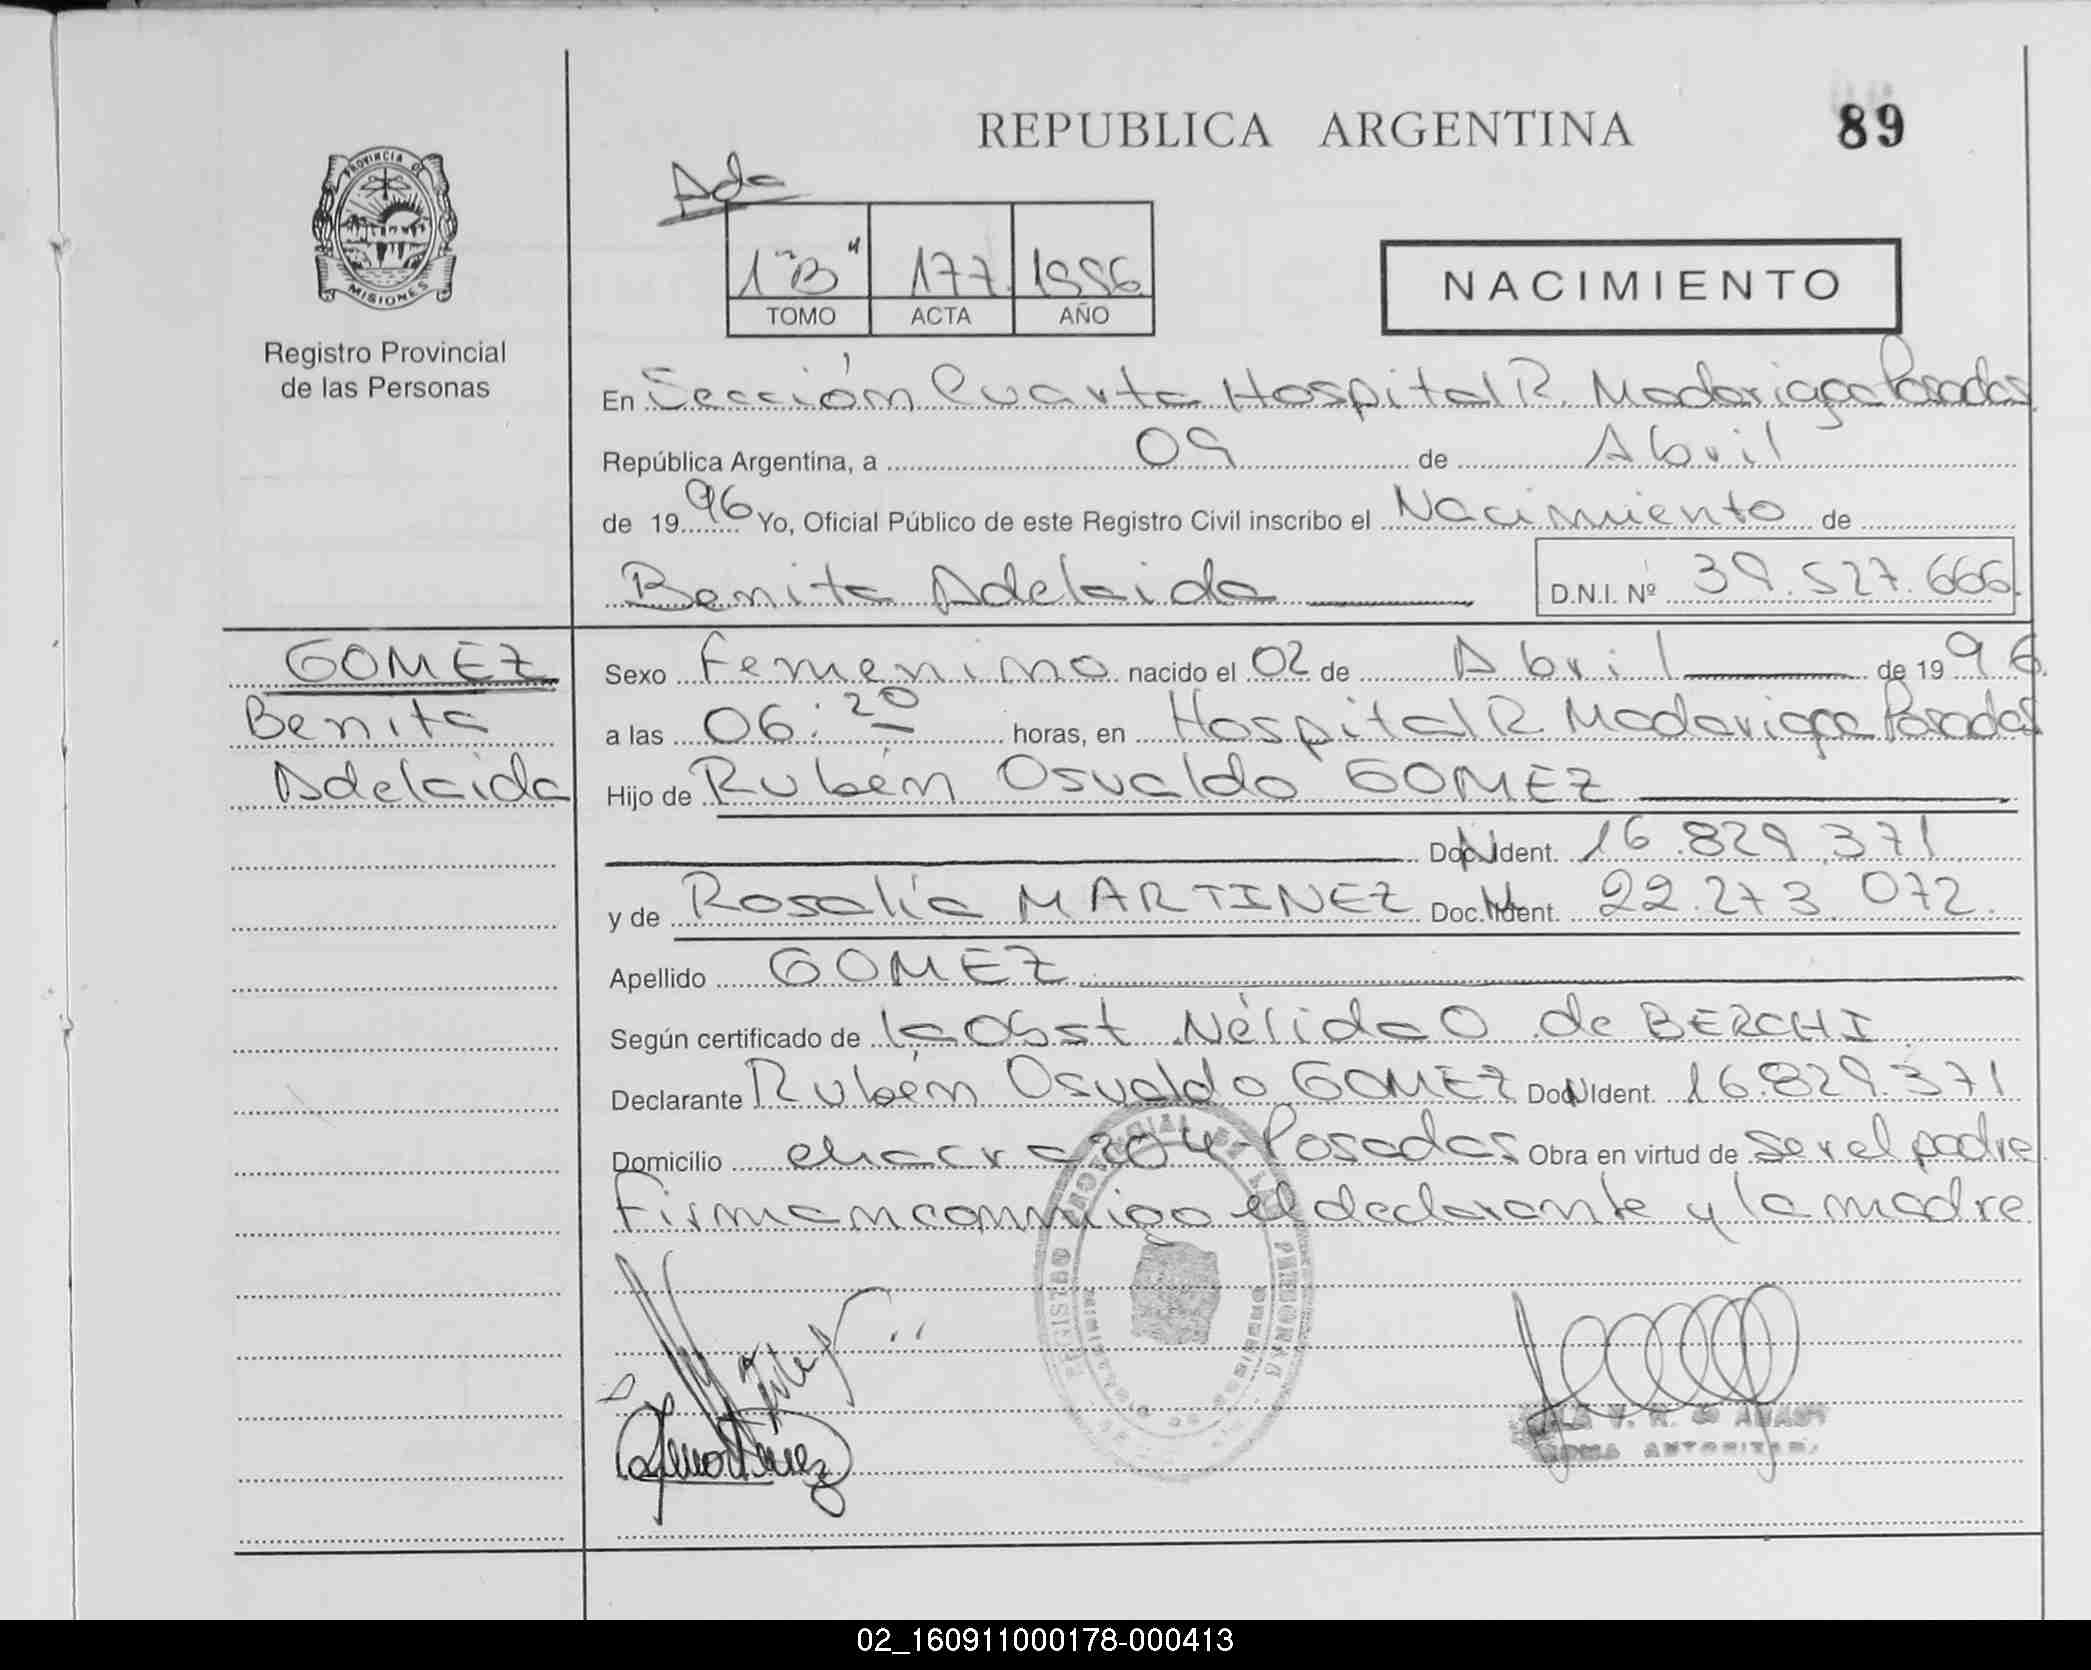 REPUBLICA ARGENTINA 89
PROVINCIA DE
MISIONES
Registro Provincial
de las Personas
Ada
1 "B" 177 1996
TOMO ACTA AÑO
NACIMIENTO
En Sección Cuarta Hospital R. Madariaga Posadas
República Argentina, a 09 de Abril
de 1996 Yo, Oficial Público de este Registro Civil inscribo el Nacimiento de
Benita Adelaida D.N.I. Nº 39.527.666
GOMEZ
Benita
Adelaida
Sexo Femenino nacido el 02 de Abril de 1996
a las 06:20 horas, en Hospital R. Madariaga Posadas
Hijo de Rubén Osvaldo GOMEZ
Doc. Ident. 16.829.371
y de Rosalía MARTINEZ Doc. Ident. 22.273.072.
Apellido GOMEZ
Según certificado de la Obst Nélida O. de BERCHI
Declarante Rubén Osvaldo GOMEZ Doc. Ident. 16.829.371
Domicilio chacra 204 - Posadas Obra en virtud de ser el padre
Firman conmigo el declarante y la madre
REGISTRO PROVINCIAL DE LAS PERSONAS
02_160911000178-000413